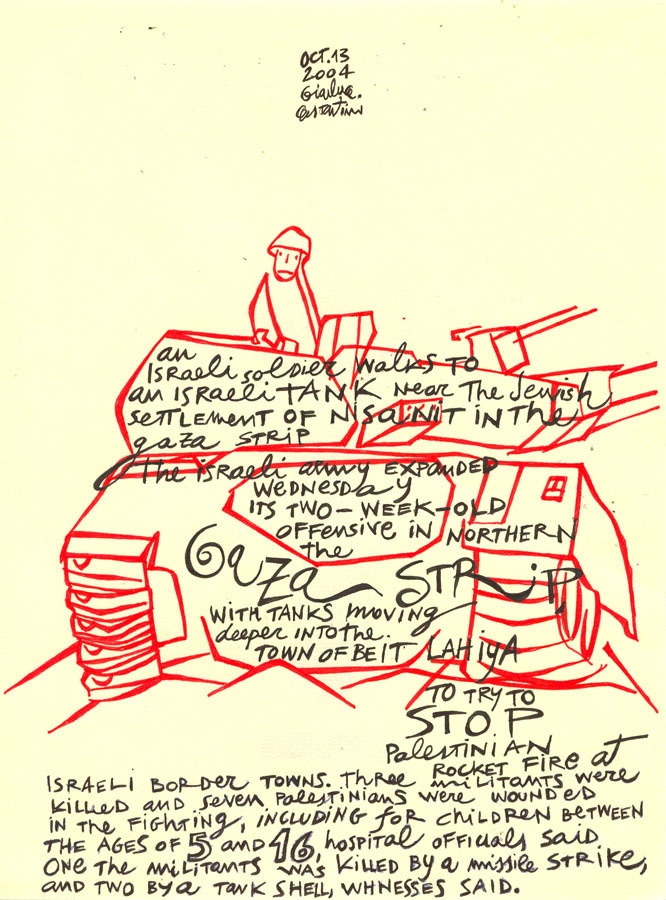 OCT.13
2004
Gianluca.
Costantini
an
Israeli soldier walks TO
an ISRaeli TANK near The Jewish
SETTLEMENT OF NISANIT IN The
gaza STRIP
The israeli army EXPANDED
WEDNESDAY
ITS TWO-WEEK-OLD
OFFENSIVE IN NORTHERN
the
Gaza STRIP
WITH TANKS moving
deeper INTO the.
TOWN OF BEIT LAHIYA
TO TRY TO
STOP
PALESTINIAN
ROCKET FIRE at
ISRAELI BORDER TOWNS. Three militants were
KILLED AND seven PALESTINIANS were WOUNDED
IN THE FIGHTING, INCLUDING FOR CHILDREN BETWEEN
THE AGES OF 5 AND 16, hospital OFFICIALS SAID.
ONE THE MILITANTS WAS KILLED BY a missile STRIKE,
AND TWO BY a TANK SHELL, WHNESSES SAID.